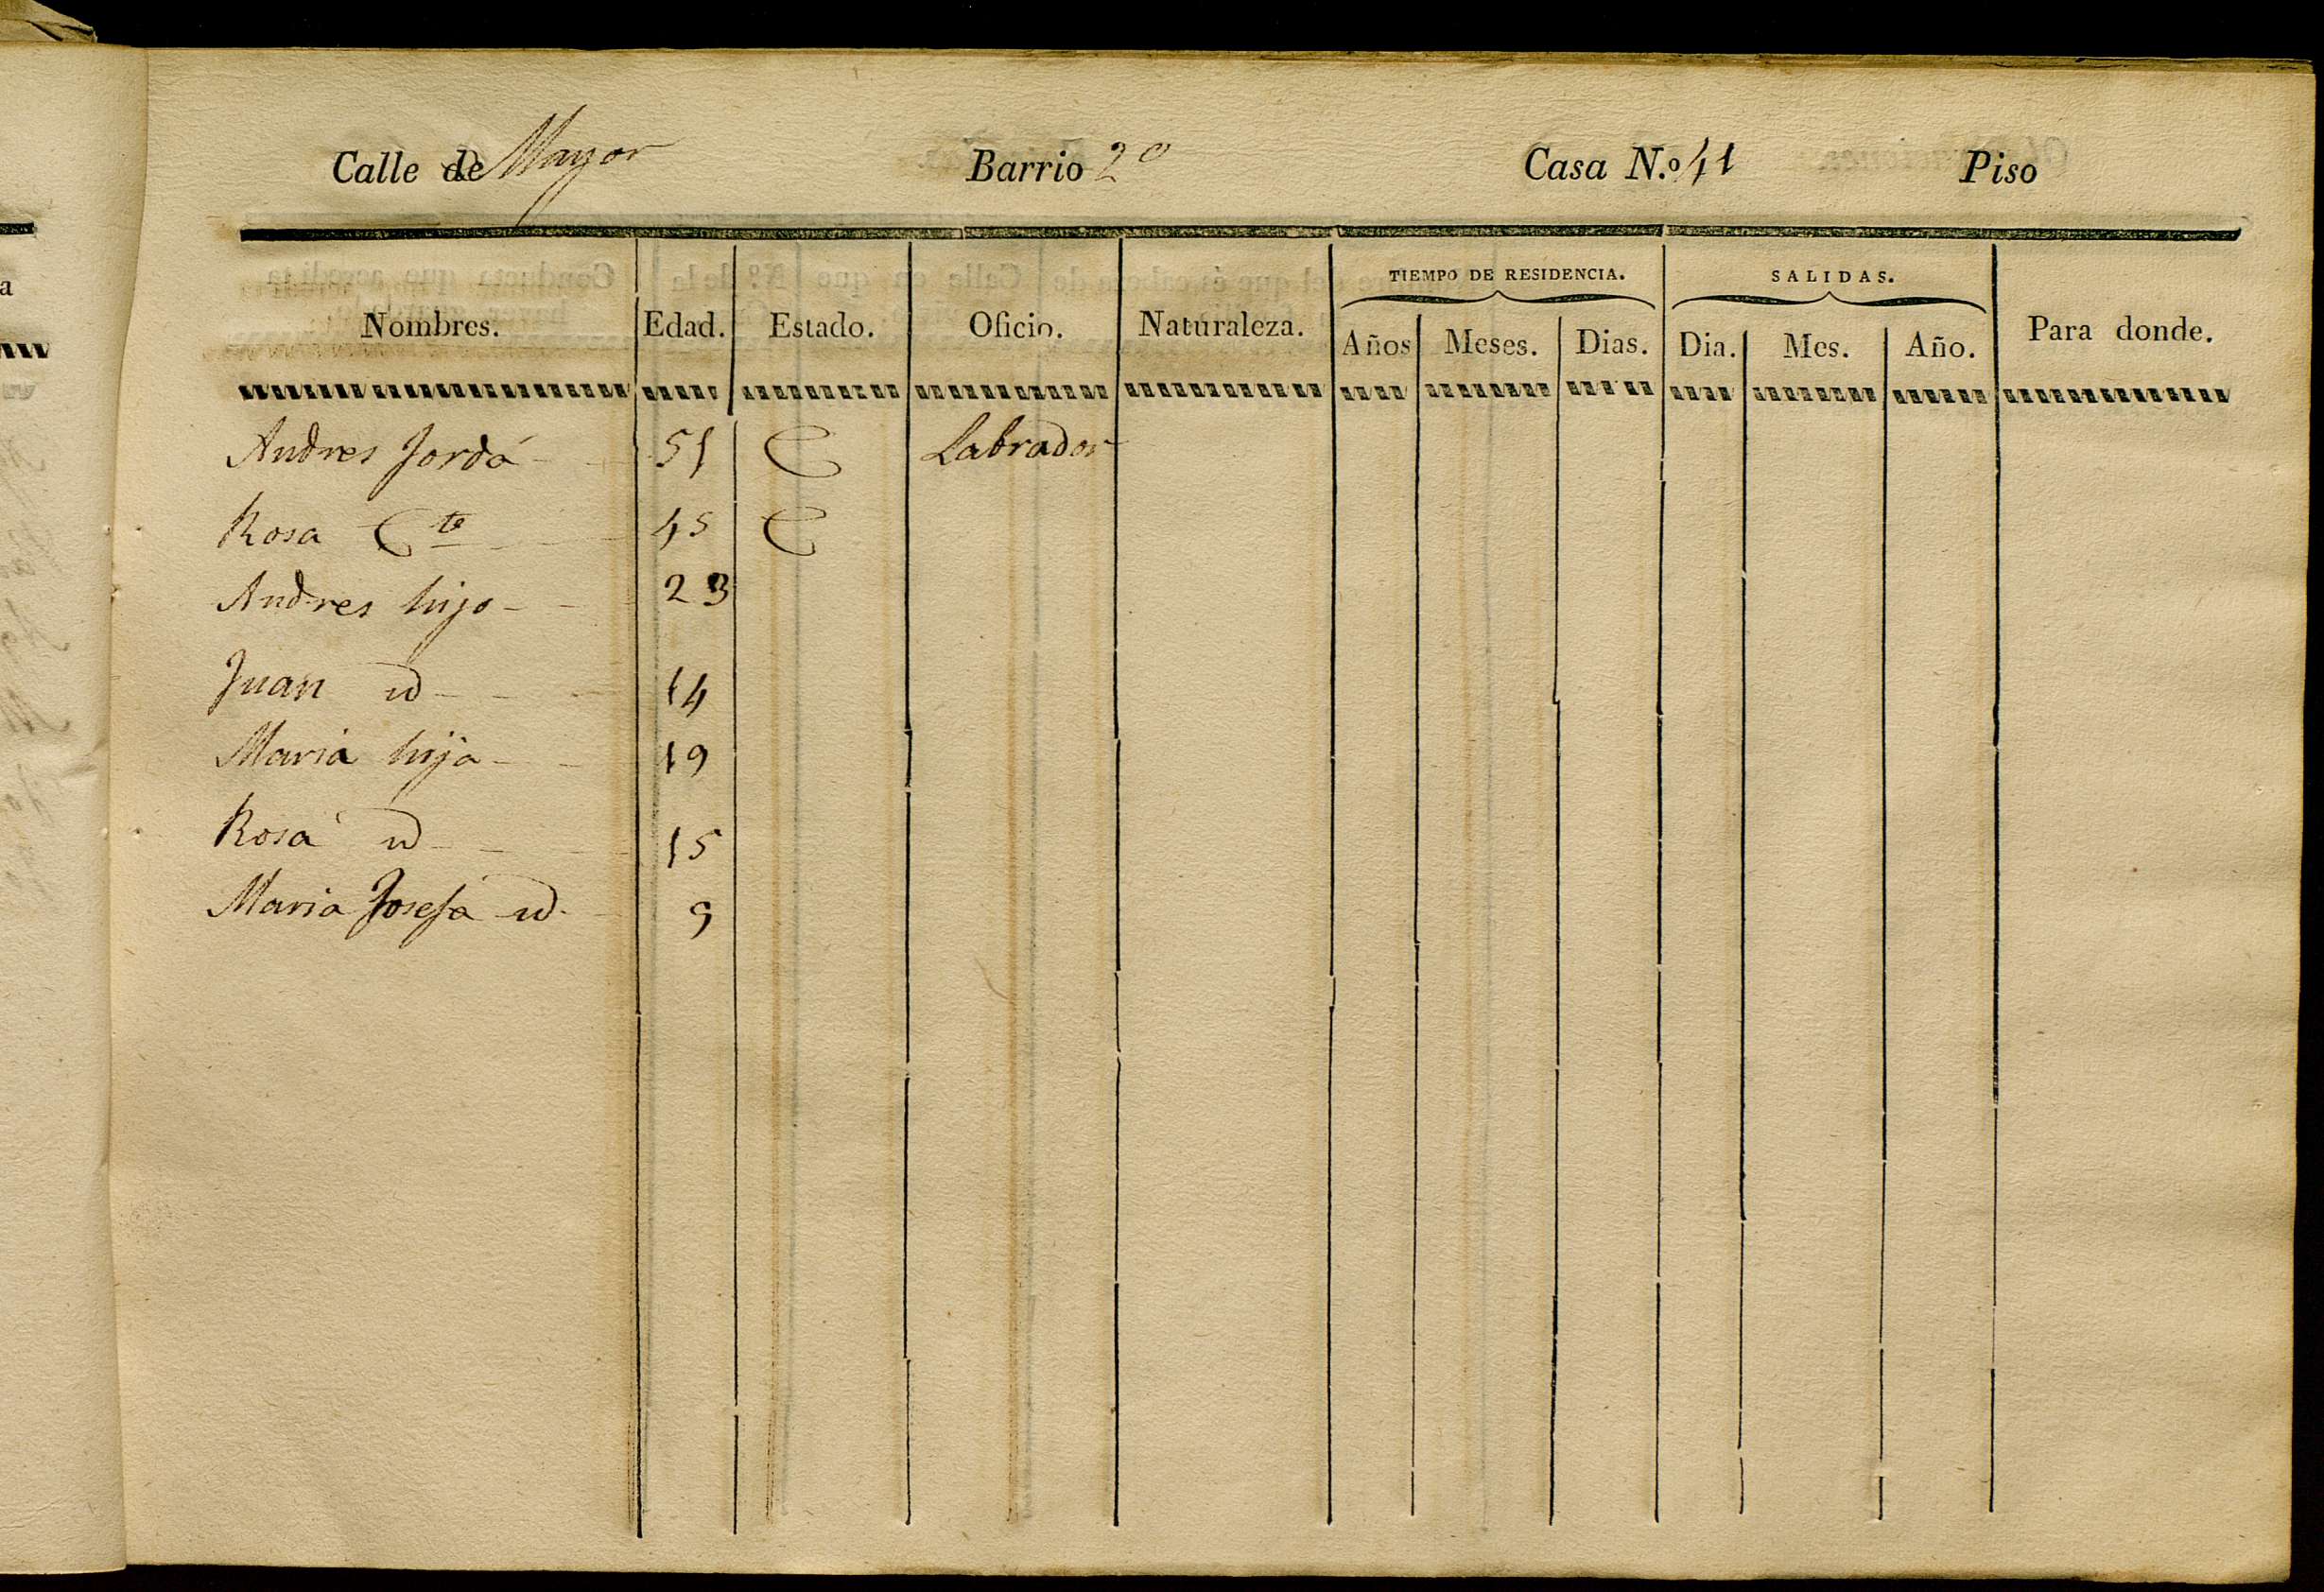 Calle de Mayor Barrio 2º Casa N.º 41 Piso
TIEMPO DE RESIDENCIA. SALIDAS.
Nombres. Edad. Estado. Oficio. Naturaleza. Años Meses. Dias. Dia. Mes. Año. Para donde.
Andres Jordá 51 C Labrador
Rosa Cte 45 C
Andres hijo 23
Juan id 14
Maria hija 19
Rosa id 15
Maria Josefa id. 9